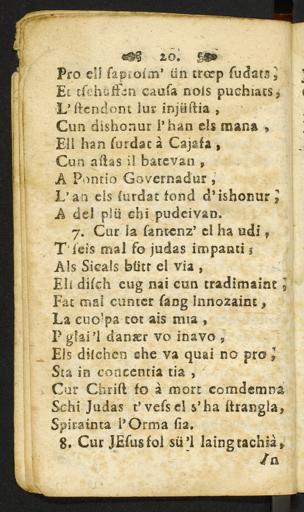 20.
Pro ell saprosm' ün trœp sudats;
Et tschüffen causa nois puchiats,
L'stendont lur injüstia,
Cun dishonur l'han els mana,
Ell han surdat à Cajafa,
Cun astas il batevan,
A Pontio Governadur;
L'an els surdat sond d'ishonur;
A del plü chi pudeivan.
7. Cur la santenz' el ha udi,
T'seis mal fo judas impanti;
Als Sicals bütt el via,
Ell disch eug nai cun tradimaint;
Fat mal cunter sang Innozaint,
La cuo'pa tot ais mia,
P'glai'l danær vo inavo;
Els dischen che va quai no pro;
Sta in concentia tia,
Cur Christ fo à mort comdemna
Schi Judas t'vess el s'ha strangla,
Spirainta l'Orma sia.
8. Cur JEsus sol sü'l laing tachià,
In